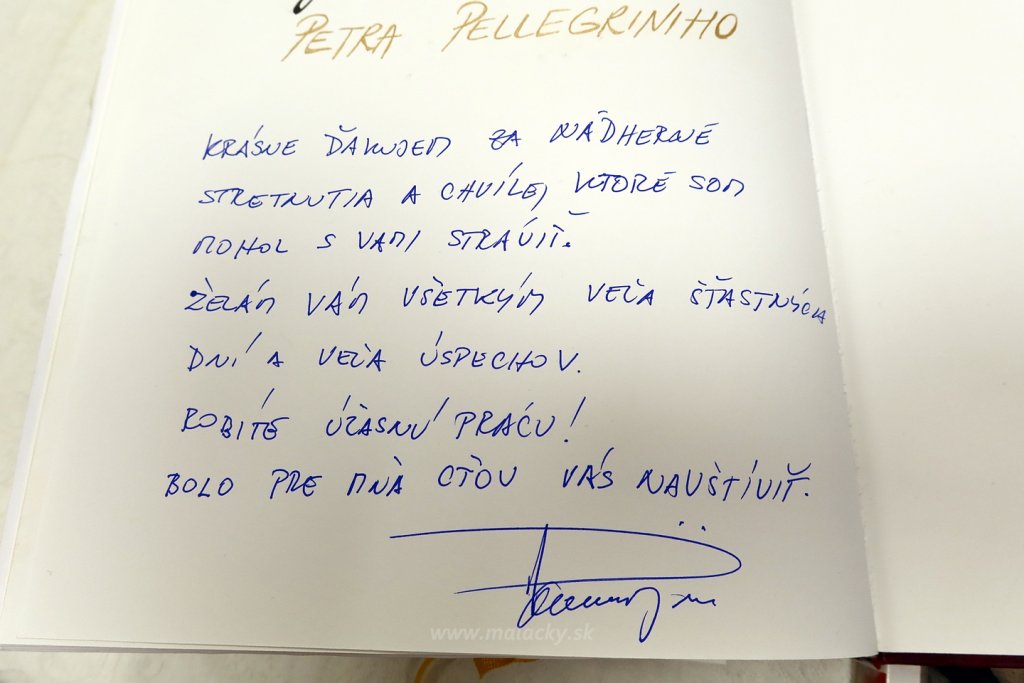 PETRA PELLEGRINIHO
KRÁSNE ĎAKUJEM ZA NÁDHERNÉ
STRETNUTIA A CHVÍLE, KTORÉ SOM
MOHOL S VAMI STRÁVIŤ.
ŽELÁM VÁM VŠETKÝM VEĽA ŠŤASTNÝCH
DNÍ A VEĽA ÚSPECHOV.
ROBÍTE ÚŽASNÚ PRÁCU!
BOLO PRE MŇA CŤOU VÁS NAVŠTÍVIŤ.
www.malacky.sk